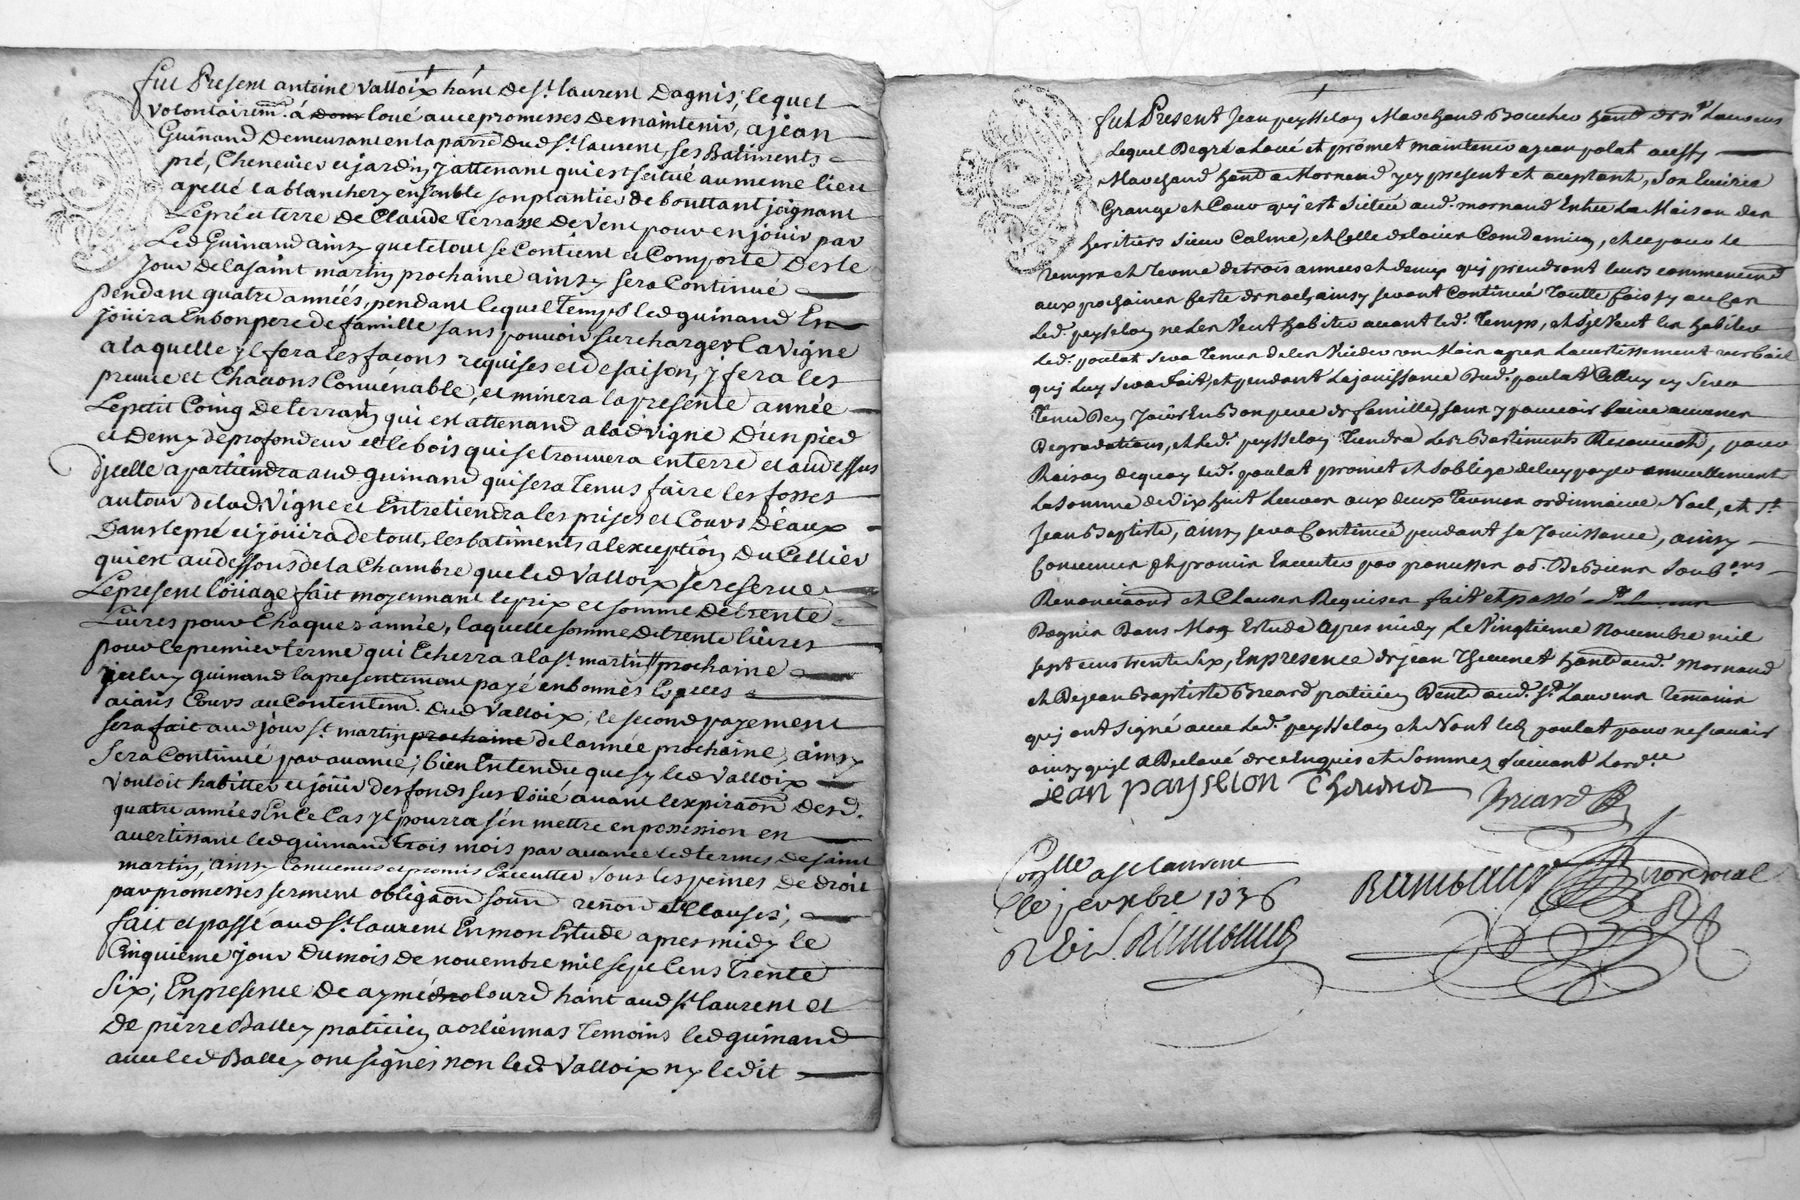 fut Present antoine Valloix hánt de st. laurent Dagnis, lequel
Volontairemt. á loué avec promesses de maintenir, a jean
Guinand Demeurant en la parre. Dud. st. laurent ses Batiments
pré, Chenevier et jardin y attenant qui est scitué au meme lieu
apellé la blanchery ensemble son plantier de bouttant joignant
Le pré et terre de Claude Terrasse De Vent pour en jouir par
Led. Guinand ainsy que le tout se Contient et Comporte Des le
Jour de la saint martin prochaine ainsy sera Continué
pendant quatre années, pendant lequel temps led guinand En
Joüira En bon pere de famille sans pouvoir surcharger la vigne
a laquelle yl fera les façons requises et de saison, y fera les
preuve et Chavons Convénable, et minera la presente année
Le petit Coing de terrain qui est attenand a lad vigne D'un pied
et Demy de profondeur et le bois qui se trouvera en terre et au dessus
djcelle apartiendra aud guinand qui sera Tenus faire les fosses
autour de lad. Vigne et Entretiendra les prises et Cours D'eaux
Dans le pré et joüira de tout, les batiments a l'exception Du Cellier
qui est au dessous de la Chambre que led Valloix se reserve
Le present loüage fait moyennant le prix et somme de trente
Livres pour Chaques année, laquelle somme De trente livres
pour le premier terme qui Echerra a la st. martin prochaine
jceluy guinand la presentement payé en bonnes Especes
aiants Cours au Contentem. Dud Valloix; le second payement
sera fait aud jour st. martin prochaine de l'année prochaine, ainsy
Sera Continué par avance; bien Entendu que sy led Valloix
Vouloit habitter et joüir des fonds sus loüé avant l'expiraon Desd.
quatre années En ce Cas yl pourra s'en mettre en possession en
avertissant led guinand trois mois par avance led termes de saint
martin, ainsy Convenus et promis Executter sous les peines de droit
par promesses serment obligaon soun renon et Clauses;
fait et passé aud st. laurent En mon Estude apres midy le
Cinquieme jour Du mois de novembre mil sept Cens Trente
Six; En presence De aymé lourd hánt aud st. laurent et
De pierre Balley praticien a orliennas Temoins led guinand
avec led Balley ont signés non led. Valloix ny ledit
fut Present Jean peysselon Marchand Boucher hand de st Laurens
Lequel De gré a Loué et promet maintenir a jean polat aussy
Marchand hand a Mornand yey present et aceptant, Son Ecurie
Grange et Cour qu'est Scitué aud. mornand Entre La Maison des
heritiers Sieur Calme, et Celle de, et ce pour le
temps et Terme de trois années et demy qui prendront leurs commencemd
aux prochaines feste de noel, ainsy sera Continué Toutte fois sy au Cas
Led. peysselon ne les Veut habiter avant led. Temps, et s'il Veut les habiter
Led. poulat sera Tenu de les Vuider un Mois apres L'avertissement verbail
qui Luy Sera fait, et pendant La jouissance Dud. poulat Celluy cy Sera
Tenu D'en Joüir En Bon pere de famille, sans y pouvoir faire aucunes
Degradations, et Led. peysselon Tiendra Les Bastiments, pour
Raison de quoy Led. poulat promet et s'oblige de luy payer annuellement
La Somme de dix huit Livres aux deux Termes ordinnaire Noel, et St.
Jean Baptiste, ainsy sera Continué pendant sa Jouissance, ainsy
Convenu et promis Executer par promesses ob. De Biens Soub.ons
Renonciaons et Clauses Requises fait et passé
Dagnis Dans Mon Estude apres midy Le Vingtieme Novembre mil
sept cens trente Six, En presence de jean Thevenet hand aud. Mornand
et De jean Baptiste Briard praticien Demt. aud. st. Laurens Temoins
qui ont Signé avec Led. peysselon et Non led. poulat pour ne scavoir
ainsy qu'yl a Declaré de ce Enquis et Sommez Suivant Lord.ce
jean payselon Thevenet Briard
Conlle a st laurent
le 1736